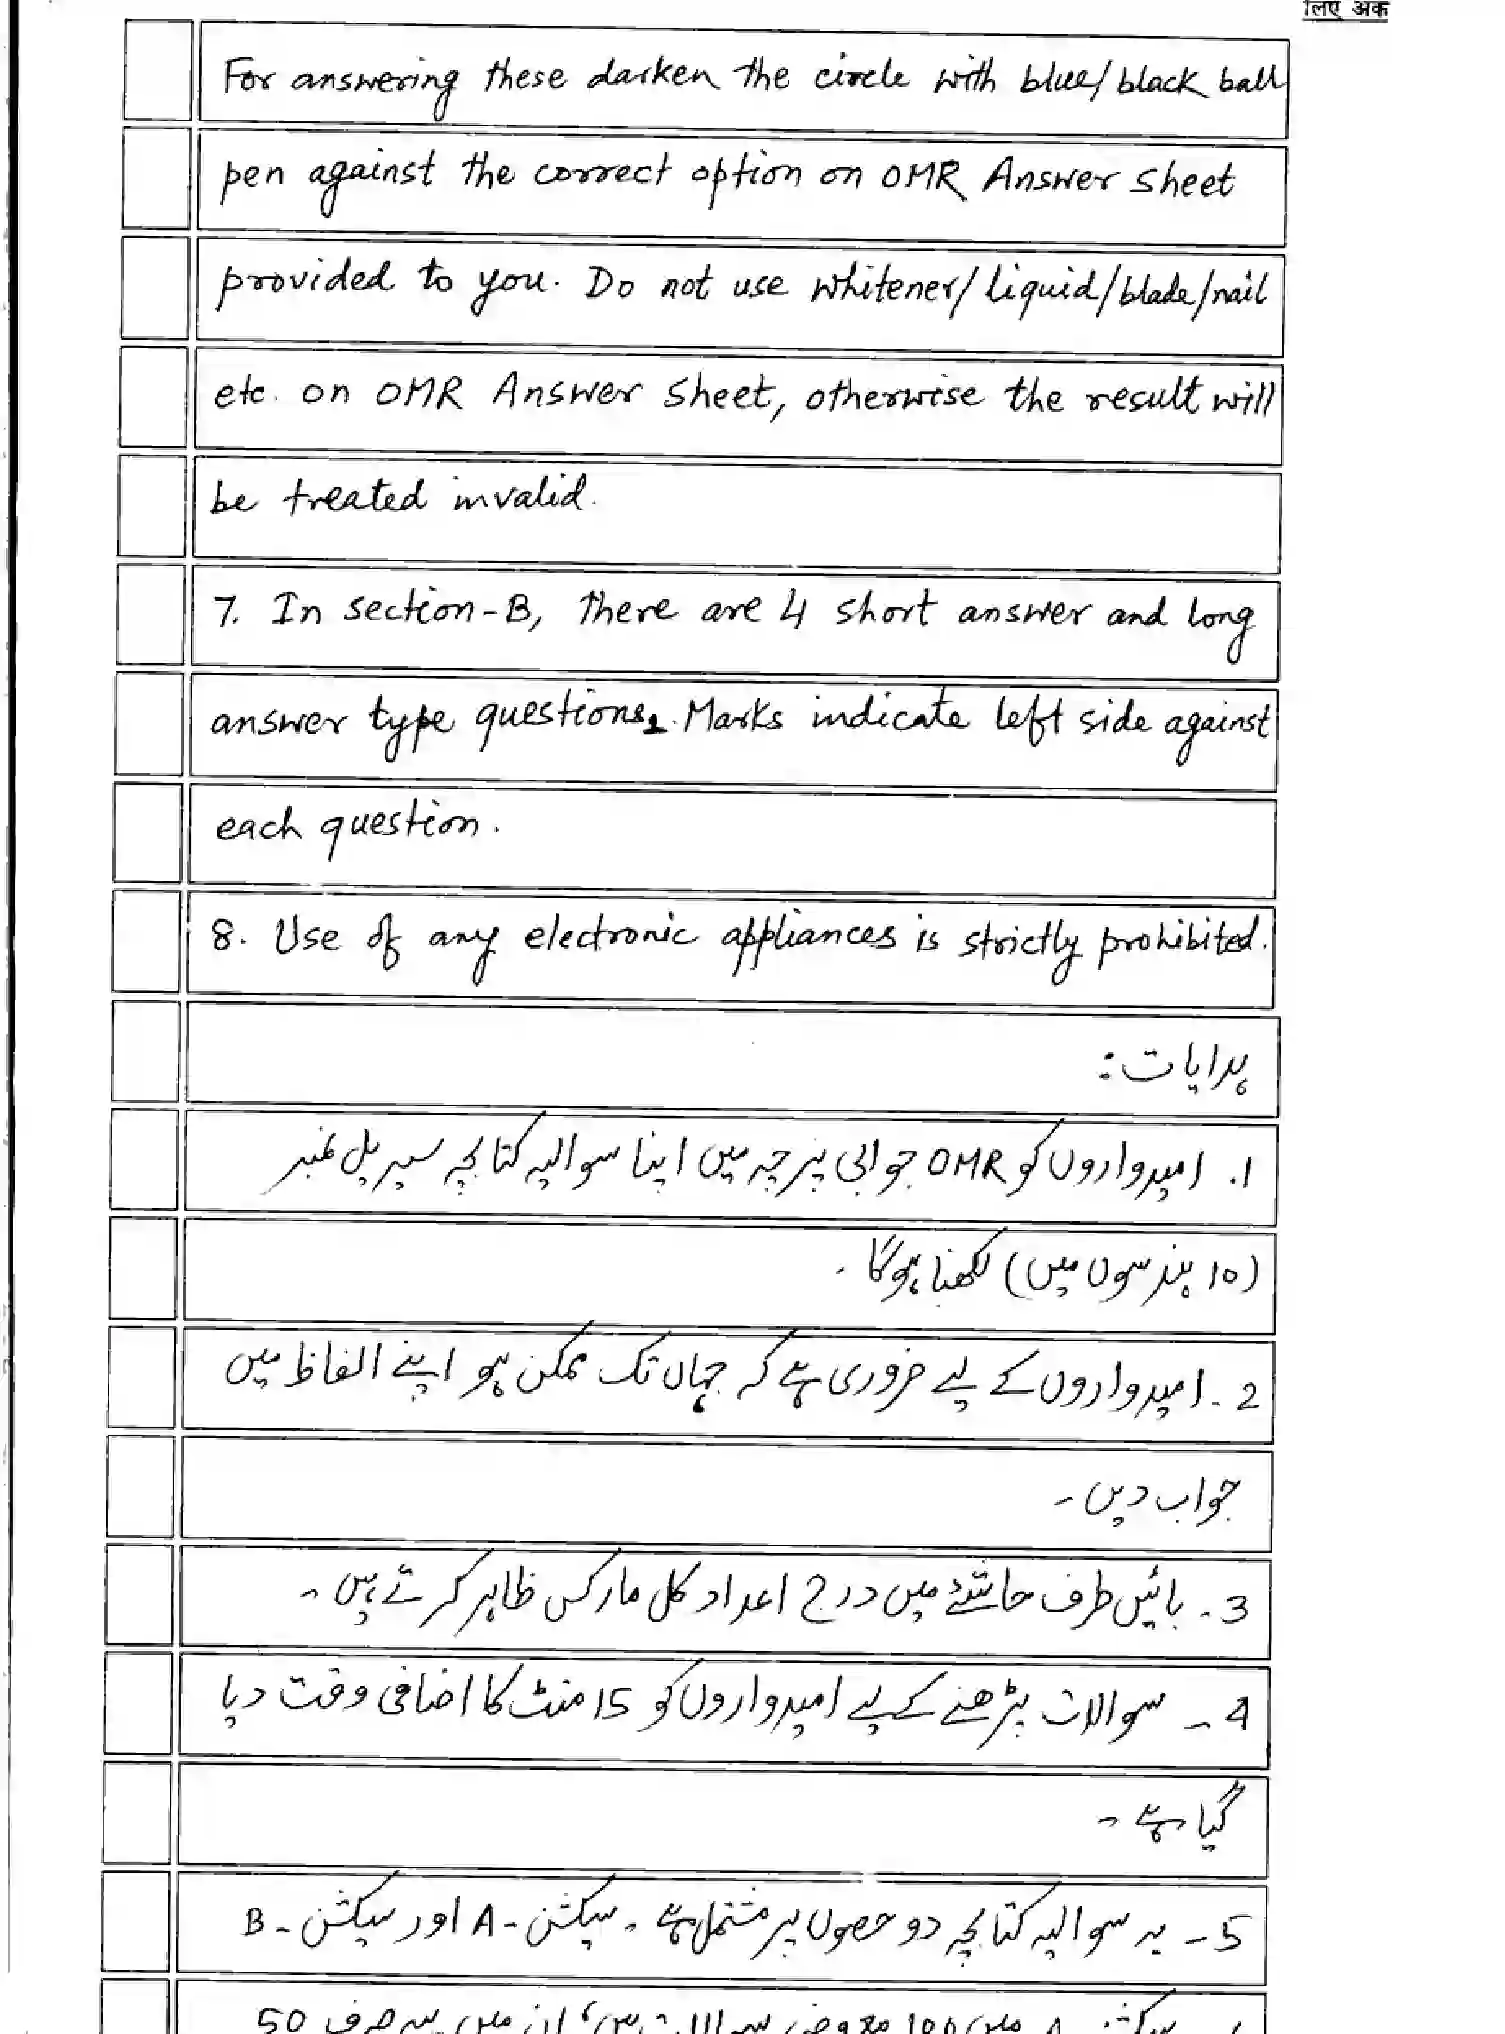 लिए अंक
For answering these darken the circle with blue/black ball
pen against the correct option on OMR Answer Sheet
provided to you. Do not use whitener/liquid/blade/nail
etc. on OMR Answer Sheet, otherwise the result will
be treated invalid.
7. In section-B, there are 4 short answer and long
answer type questions. Marks indicate left side against
each question.
8. Use of any electronic appliances is strictly prohibited.
ہدایات:
1. امیدواروں کو OMR جوابی پرچہ میں اپنا سوالیہ کتابچہ سیریل نمبر
(10 ہندسوں میں) لکھنا ہوگا۔
2۔ امیدواروں کے لیے ضروری ہے کہ جہاں تک ممکن ہو اپنے الفاظ میں
جواب دیں۔
3۔ بائیں طرف حاشئے میں درج اعداد کل مارکس ظاہر کرتے ہیں۔
4۔ سوالات پڑھنے کے لیے امیدواروں کو 15 منٹ کا اضافی وقت دیا
گیا ہے۔
5۔ یہ سوالیہ کتابچہ دو حصوں پر مشتمل ہے۔ سیکشن-A اور سیکشن-B
سیکشن A میں 100 معروضی سوالات ہیں، ان میں سے صرف 50